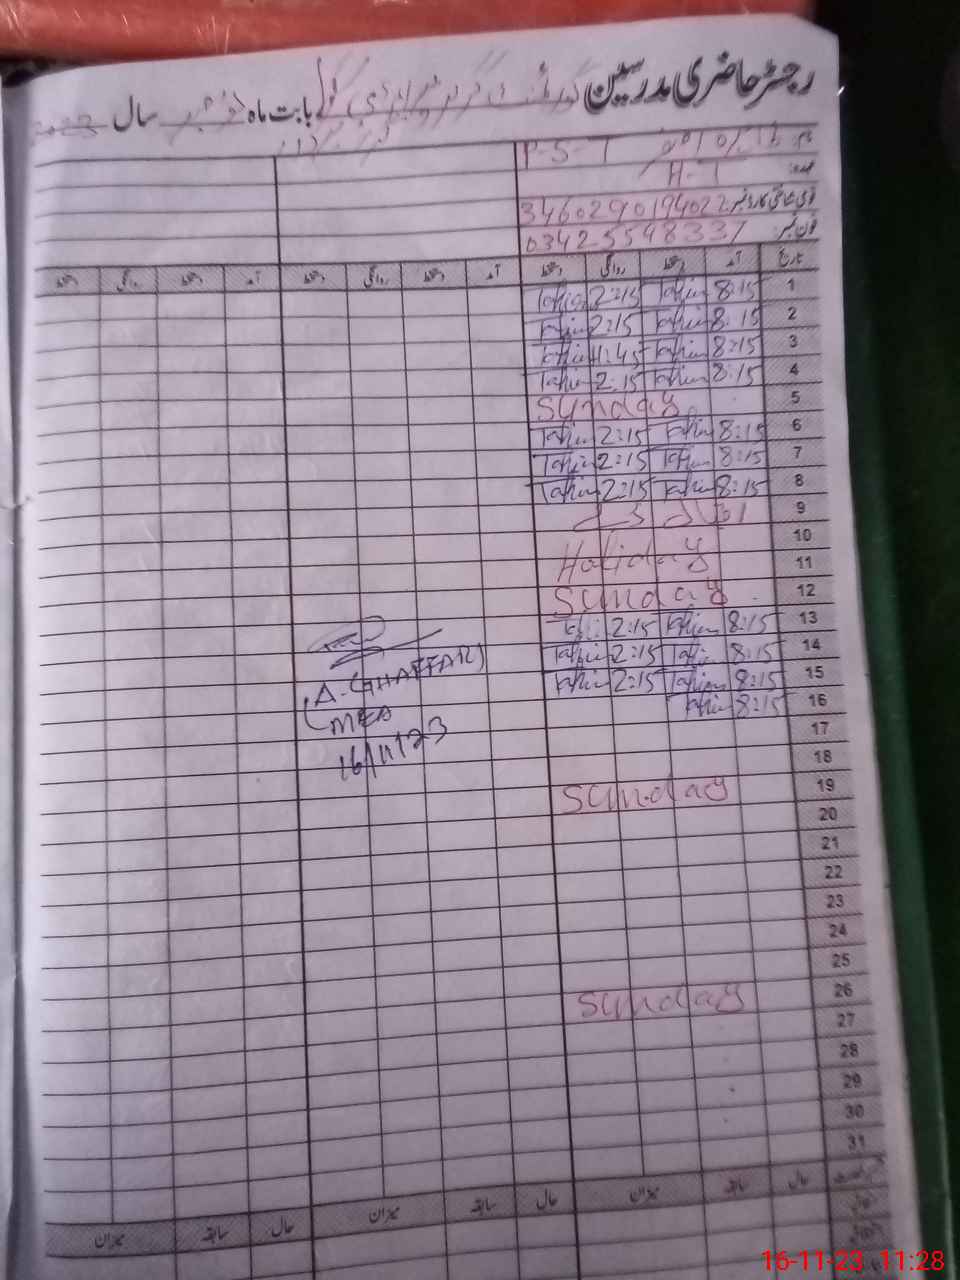 رجسٹر حاضری مدرسین
بابت ماہ نومبر سال
نام:
P-S-T
عہدہ:
H-T
قومی شناختی کارڈ نمبر: 3460290194022
فون نمبر: 03425598337
تاریخ آمد دستخط روانگی دستخط آمد دستخط روانگی دستخط
1 8:15 Tahir 2:15 Tahir
2 8:15 Tahir 2:15 Tahir
3 8:15 Tahir 11:45 Tahir
4 8:15 Tahir 2:15 Tahir
5 Sunday
6 8:15 Tahir 2:15 Tahir
7 8:15 Tahir 2:15 Tahir
8 8:15 Tahir 2:15 Tahir
9
10
11 Holiday
12 Sunday
13 8:15 Tahir 2:15 Tahir
14 8:15 Tahir 2:15 Tahir
15 8:15 Tahir 2:15 Tahir
16 8:15 Tahir
A. GHAFFAR
MEA
16/11/23
17
18
19 Sunday
20
21
22
23
24
25
26 Sunday
27
28
29
30
31
حال سابقہ میزان حال سابقہ میزان حال سابقہ میزان
16-11-23 11:28